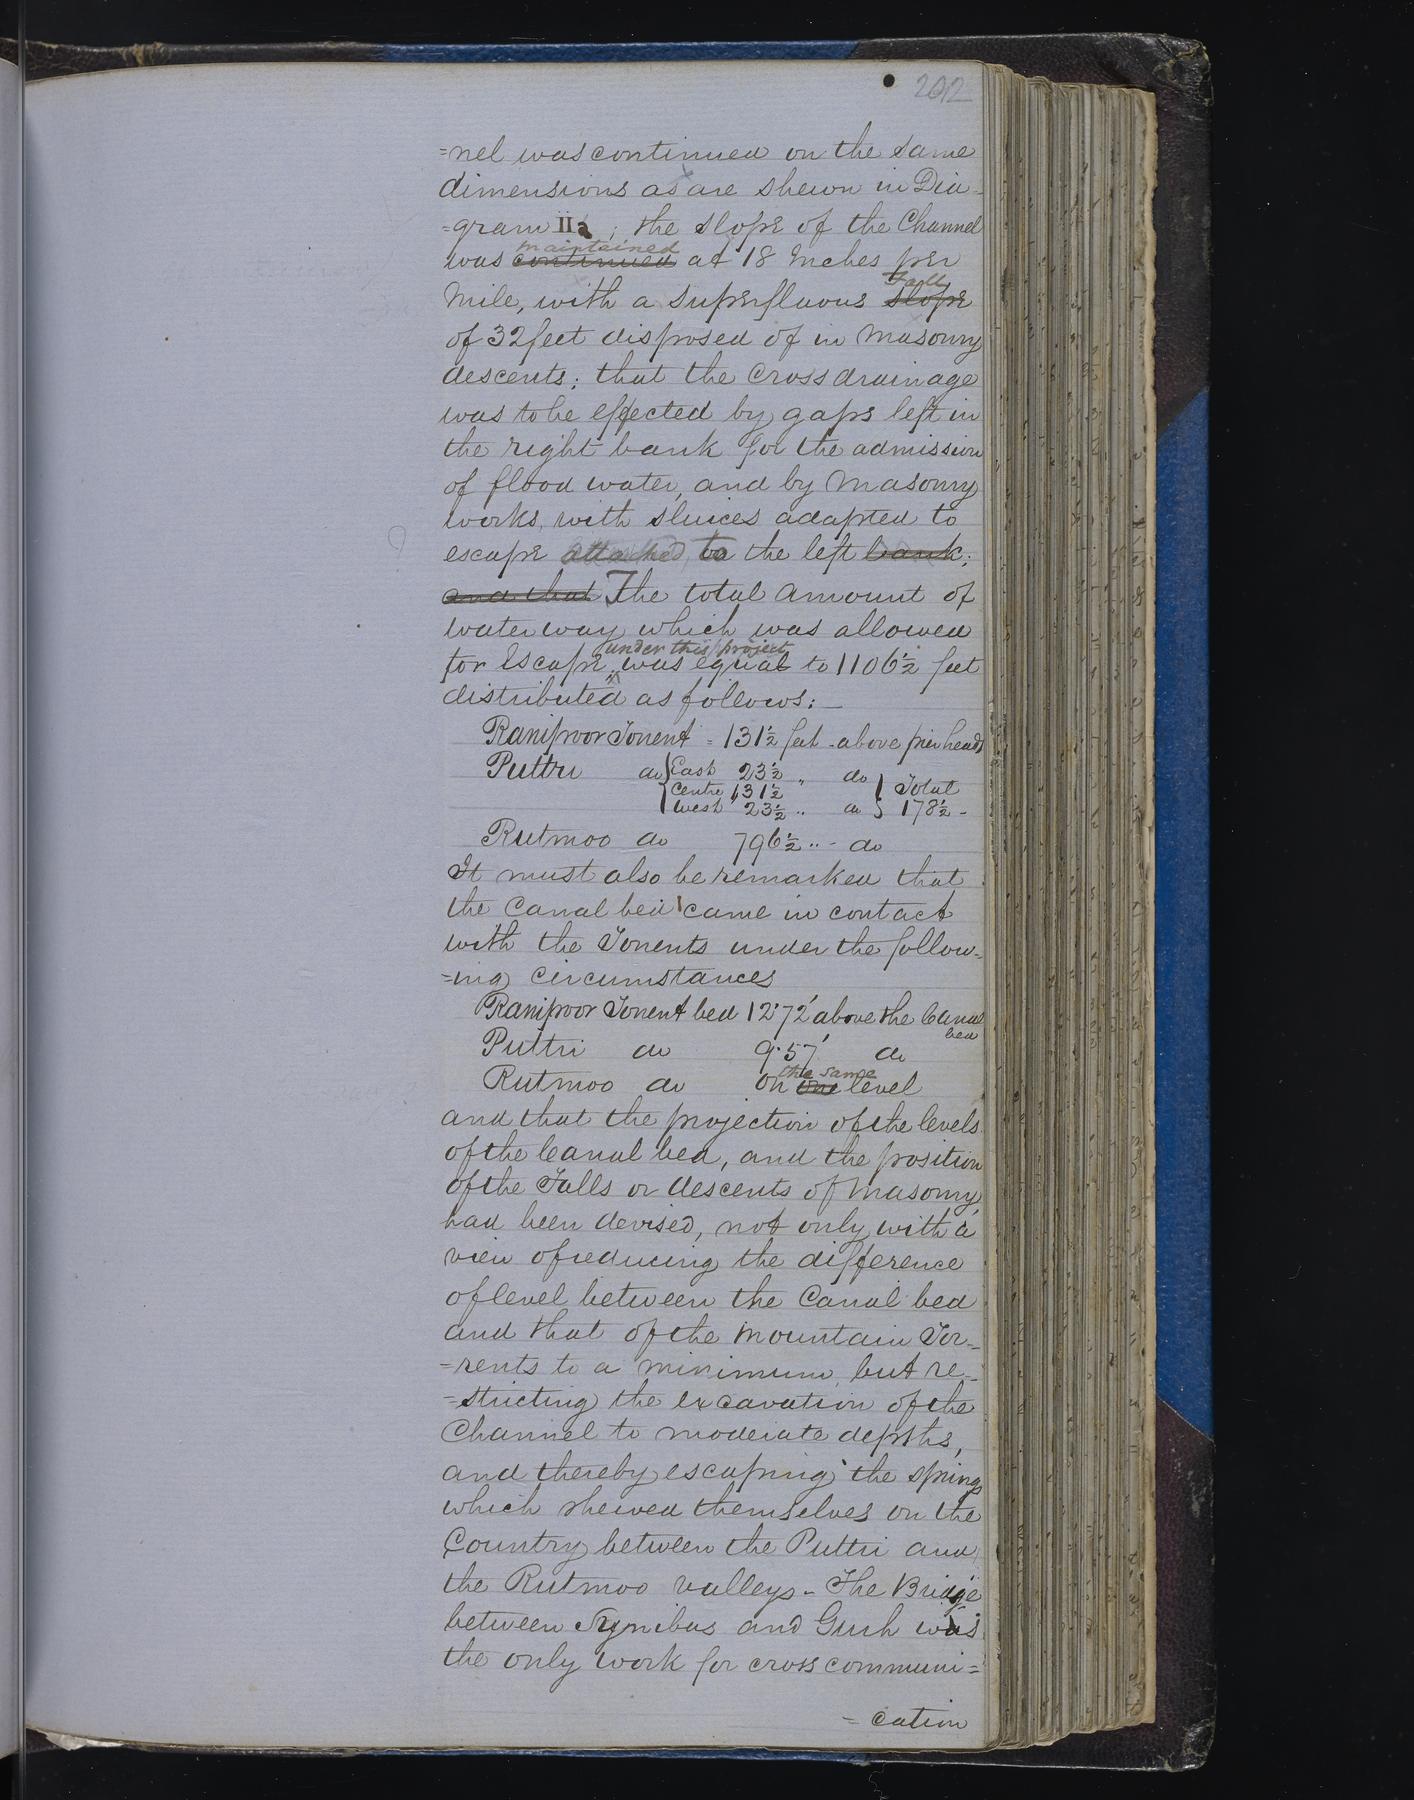 202
=nel was continued on the same
dimensions as are shewn in Dia-
=gram IIa; the slope of the Channel
maintained
was continued at 18 Inches per
fall
Mile, with a superfluous slope
of 32 feet disposed of in masonry
descents; that the cross drainage
was to be effected by gaps left in
the right bank for the admission
of flood water, and by masonry
works, with sluices adapted to
escape attached to the left bank;
and that The total amount of
water way which was allowed
under this project
for Escape was equal to 1106½ feet
distributed as follows:—
Ranipoor Torrent = 131½ feet - above pier heads
Puttri do East 23½ " do Total
Centre 131½
West 23½ " do 178½ -
Rutmoo do 796½ " - do
It must also be remarked that
the Canal bed came in contact
with the Torrents under the follow-
=ing circumstances
Ranipoor Torrent bed 12.72' above the Canal
bed
Puttri do 9.57' do
the same
Rutmoo do on one level
and that the projection of the levels
of the Canal bed, and the position
of the Falls or descents of masonry,
had been devised, not only with a
view of reducing the difference
of level between the Canal bed
and that of the mountain Tor-
=rents to a minimum, but re-
=stricting the excavation of the
Channel to moderate depths,
and thereby escaping the springs
which shewed themselves on the
Country between the Puttri and
the Rutmoo valleys - The Bridge
between and Gurh was
the only work for cross communi=
=cation